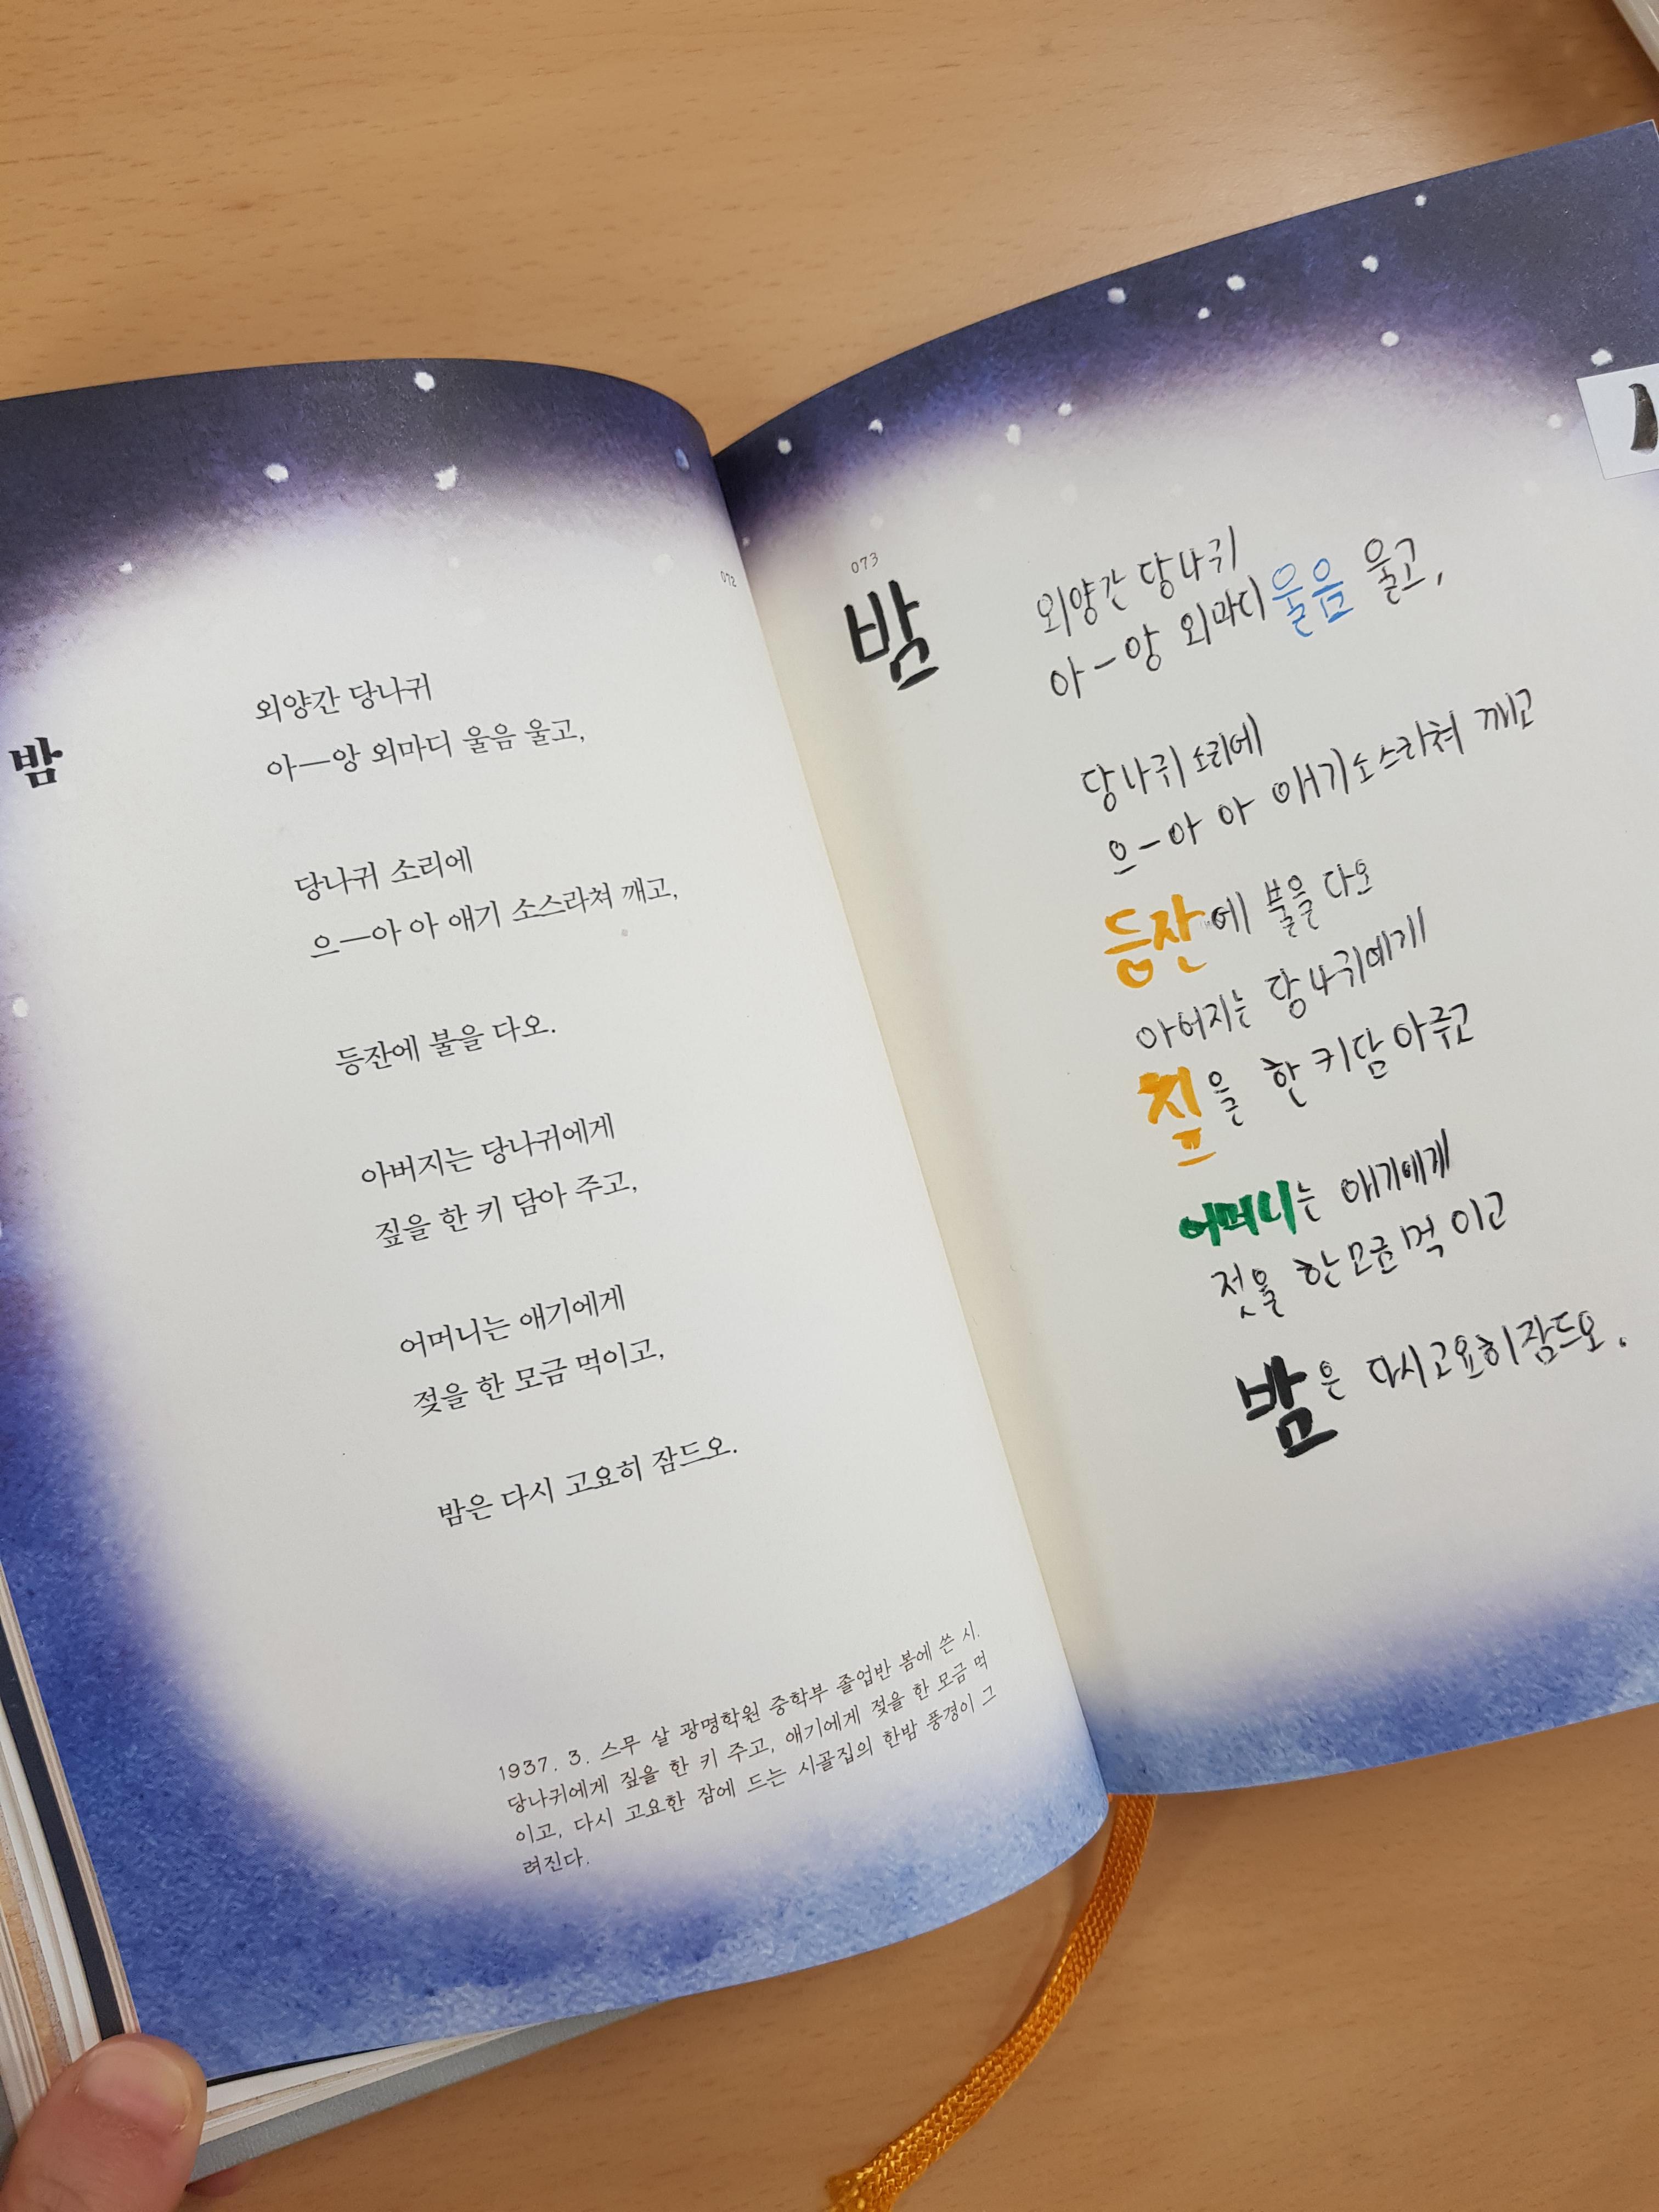 072
밤
외양간 당나귀
아—앙 외마디 울음 울고,
당나귀 소리에
으—아 아 애기 소스라쳐 깨고,
등잔에 불을 다오.
아버지는 당나귀에게
짚을 한 키 담아 주고,
어머니는 애기에게
젖을 한 모금 먹이고,
밤은 다시 고요히 잠드오.
1937. 3. 스무 살 광명학원 중학부 졸업반 봄에 쓴 시.
당나귀에게 짚을 한 키 주고, 애기에게 젖을 한 모금 먹
이고, 다시 고요한 잠에 드는 시골집의 한밤 풍경이 그
려진다.
073
밤
외양간 당나귀
아-앙 외마디 울음 울고,
당나귀 소리에
으-아 아 애기 소스라쳐 깨고
등잔에 불을 다오
아버지는 당나귀에게
짚을 한 키 담아 주고
어머니는 애기에게
젖을 한모금 먹이고
밤은 다시 고요히 잠드오.